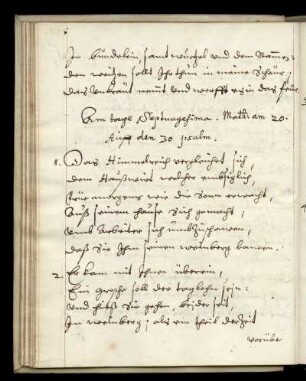 In bündelin, samt wurtzel und dem Namen:
den weitzen sollt Ihr thun in meine Scheur,
das Unkraut nemt und werfft es in das feur.
Am tage Septuagesima. Math: am 20.
den 30 psalm.
1. Das Himmelreich vergleichet sich,
dem Haußwirt welcher embsiglich,
morgens wie die Sonn erwacht,
Auß seinem hause sich gemacht,
umb Arbeiter sich umbzuschauen,
daß Sie Ihm seinen weinberg bauen.
2. Er kam mit Ihnen überein,
Ein grosche soll der taglohn sein:
und hieß Sie gehen, beider seit
Im weinberg; als ein theil der Zeit
vorüber